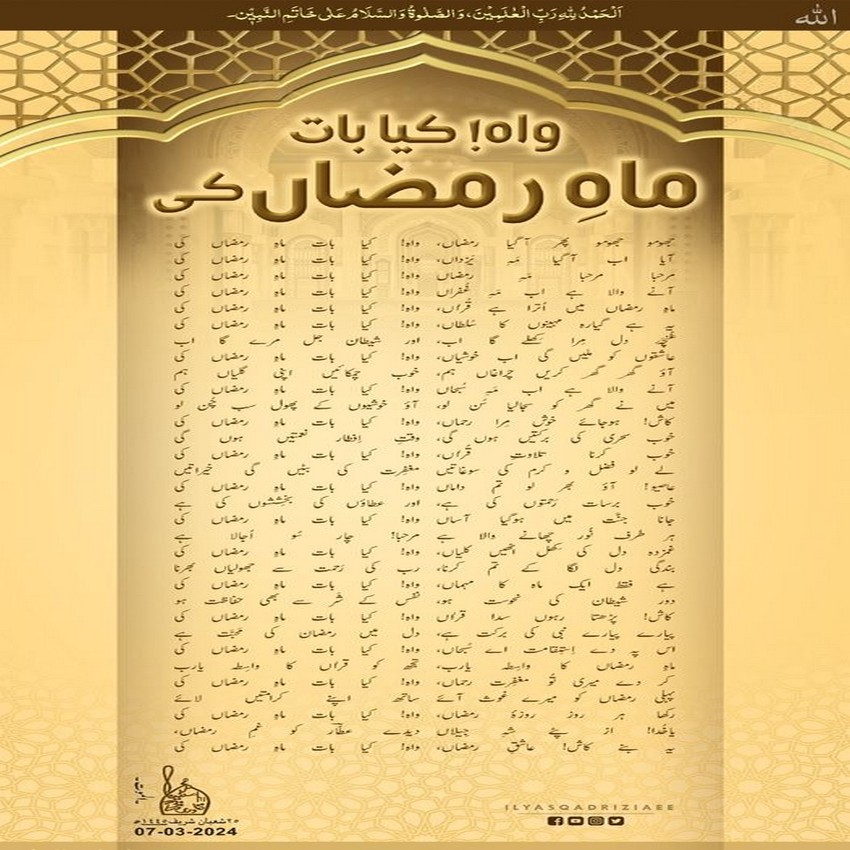 اَلْحَمْدُ لِلّٰهِ رَبِّ الْعٰلَمِیْنَ، وَالصَّلٰوةُ وَالسَّلَامُ عَلٰی خَاتَمِ النَّبِیّٖن۔
الله
واہ! کیا بات
ماہِ رمضاں کی
جھومو جھومو پھر آگیا رمضاں، واہ! کیا بات ماہِ رمضاں کی
آیا اب آگیا مَہِ یَزداں، واہ! کیا بات ماہِ رمضاں کی
مرحبا مرحبا مَہِ رمضاں واہ! کیا بات ماہِ رمضاں کی
آنے والا ہے اب مَہِ غُفراں واہ! کیا بات ماہِ رمضاں کی
ماہِ رمضاں میں اُترا ہے قُرآں، واہ! کیا بات ماہِ رمضاں کی
یہ ہے گیارہ مہینوں کا سُلطاں، واہ! کیا بات ماہِ رمضاں کی
غُنچۂ دل مِرا کِھلے گا اب، اور شیطان جل مرے گا اب
عاشقوں کو ملیں گی اب خوشیاں، واہ! کیا بات ماہِ رمضاں کی
آؤ گھر گھر کریں چراغاں ہم، خوب چمکائیں اپنی گلیاں ہم
آنے والا ہے اب مَہِ سُبحاں واہ! کیا بات ماہِ رمضاں کی
میں نے گھر کو سجالیا سُن لو، آؤ خوشیوں کے پھول سب چُن لو
کاش! ہوجائے خوش مِرا رحماں، واہ! کیا بات ماہِ رمضاں کی
خوب سحری کی برکتیں ہوں گی، وقتِ اِفطار نعمتیں ہوں گی
خوب کرنا تلاوتِ قُرآں، واہ! کیا بات ماہِ رمضاں کی
لے لو فضل و کرم کی سوغاتیں مغفرت کی بٹیں گی خیراتیں
عاصیو! آؤ بھر لو تم داماں واہ! کیا بات ماہِ رمضاں کی
خوب برسات رَحمتوں کی ہے، اور عطاؤں کی بخششوں کی ہے
جانا جنّت میں ہوگیا آساں واہ! کیا بات ماہِ رمضاں کی
ہر طرف نُور چھانے والا ہے مرحبا! چار سُو اُجالا ہے
غمزدہ دل کی کِھل اُٹھیں کلیاں، واہ! کیا بات ماہِ رمضاں کی
بندگی دل لگا کے تم کرنا، رب کی رَحمت سے جھولیاں بھرنا
ہے فقط ایک ماہ کا مہماں، واہ! کیا بات ماہِ رمضاں کی
دور شیطان کی نحوست ہو، نفس کے شَر سے بھی حفاظت ہو
کاش! پڑھتا رہوں سدا قرآں واہ! کیا بات ماہِ رمضاں کی
پیارے پیارے نبی کی برکت ہے، دل میں رمضان کی مَحبّت ہے
اس پہ دے اِستِقامت اے سُبحاں، واہ! کیا بات ماہِ رمضاں کی
ماہِ رمضاں کا واسِطہ یارب، تجھ کو قرآں کا واسِطہ یارب
کر دے میری تُو مغفرت رحماں، واہ! کیا بات ماہِ رمضاں کی
پہلی رمضاں کو میرے غوث آئے ساتھ اپنے کرامتیں لائے
رکھا ہر روز روزۂ رمضاں، واہ! کیا بات ماہِ رمضاں کی
یاخُدا! از پئے شہِ جیلاں دیدے عطّار کو غمِ رمضاں،
یہ بنے کاش! عاشقِ رمضاں، واہ! کیا بات ماہِ رمضاں کی
۲۵ شعبان شریف ۱۴۴۵ھ
07-03-2024
ILYASQADRIZIAEE